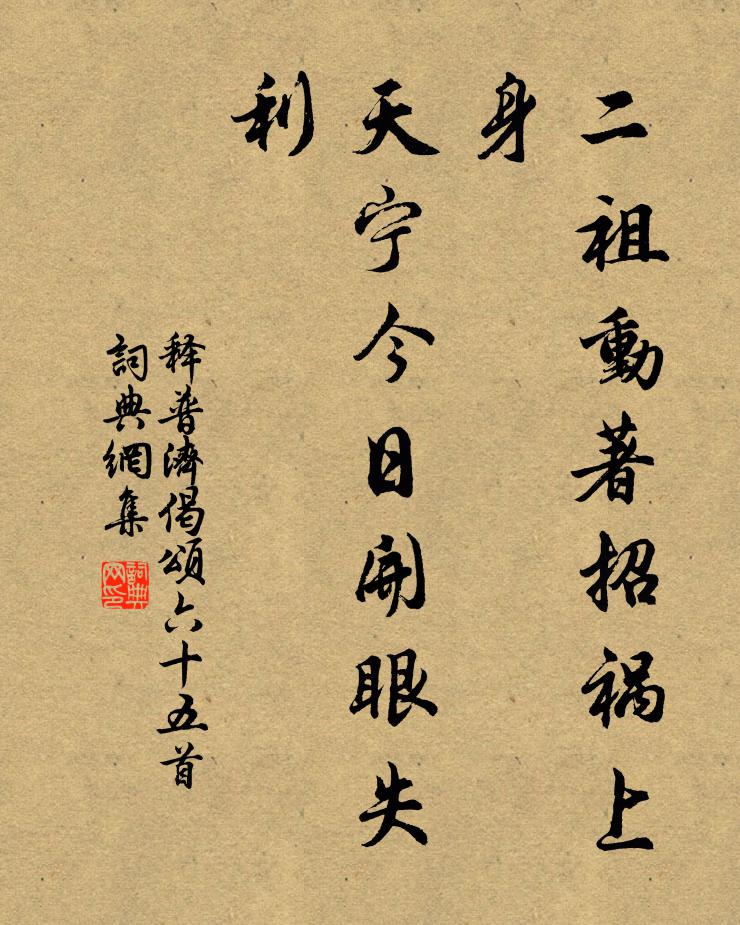 二祖動著招祸上
身
天宁今日開眼失
利
释普濟偈頌六十五首
詞典網集
詞典网印